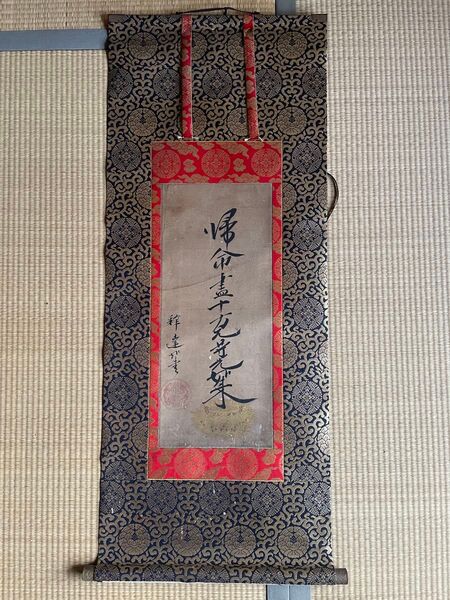 帰命盡十方无㝵光如来
釋達如書